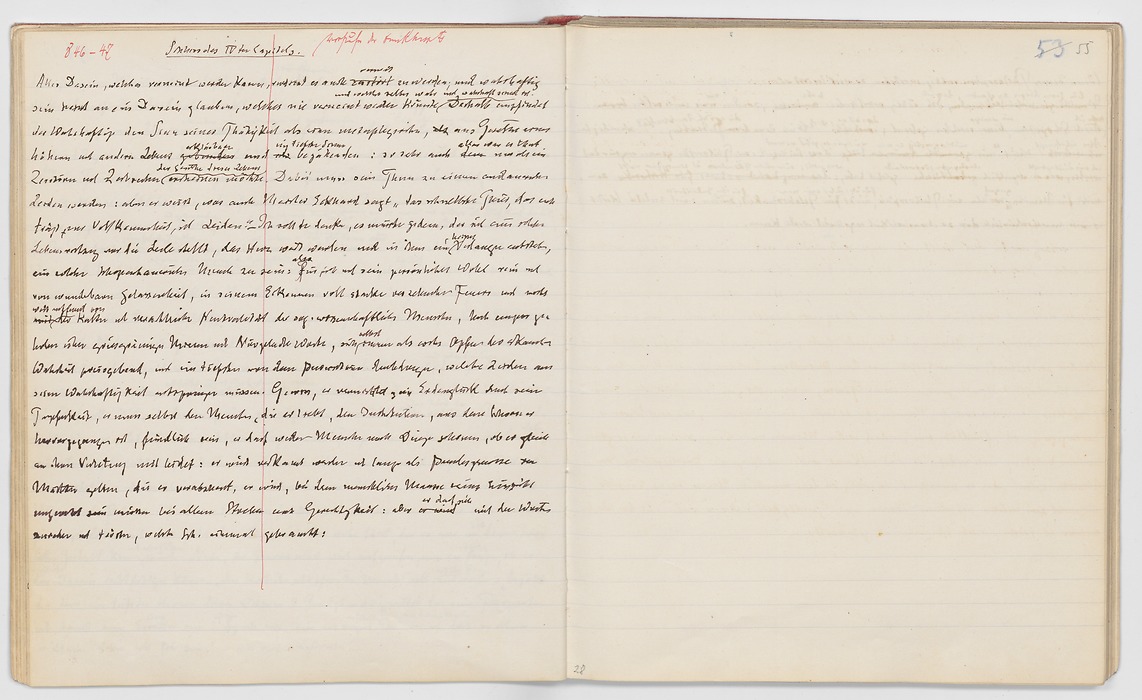 846–47 Schluss des IV ten Capitels.
verneint
Alles Dasein, welches verneint werden kann, verdient es auch zerstört zu werden; und wahrhaftig
und welches selber wahr und wahrhaft
sein heisst an ein Dasein glauben, welches nie verneint werden könnte. Deshalb empfindet
der Wahrhaftige den Sinn seiner Thätigkeit als einen metaphysischen, aus Gesetzen eines
erklärbaren im tiefsten Sinne alles was er thut
höhern und andern Lebens und bejahenden: so sehr auch ein
der Gesetze dieses Lebens
Zerstören und Zerbrechen erscheinen möchte. Dabei muss sein Thun zu einem andauernden
Leiden werden: aber er weiss, was auch Meister Eckhard sagt „das schnellste Thier, das euch
trägt zur Vollkommenheit, ist Leiden“. Ich sollte denken, es müsste jedem, der sich eine solche
heisses
Lebensrichtung vor die Seele stellt, das Herz weit werden und in ihm ein Verlangen entstehen,
also
ein solcher Schopenhauerischer Mensch zu sein: für sich und sein persönliches Wohl rein und
von wunderbarer Gelassenheit, in seinem Erkennen voll starken verzehrenden Feuers und
weit entfernt von
der kalten und verächtlichen Neutralität des sog. wissenschaftlichen Menschen, hoch empor ge-
selbst
hoben über griesgrämige, sich immer als erstes Opfer der erkannten
Wahrheit preisgebend, und im tiefsten von dem Bewusstsein durchdrungen, welche Leiden aus
seiner Wahrhaftigkeit entspringen müssen. Gewiss, er vernichtet sein Erdenglück durch seine
Tapferkeit, er muss selbst den Menschen, die er liebt, den Institutionen, aus deren Schoosse er
hervorgegangen ist, feindlich sein, er darf weder Menschen noch Dinge schonen, ob er gleich
an ihrer Verletzung mit leidet: er wird verkannt werden und lange als Bundesgenosse von
Mächten gelten, die er verabscheut, er wird, bei dem menschlichen Maasse seiner Einsicht
er darf sich
ungerecht sein müssen bei allem Streben nach Gerechtigkeit: aber er wird mit den Worten
zureden und trösten, welche Sch. einmal gebraucht:
28
53 55